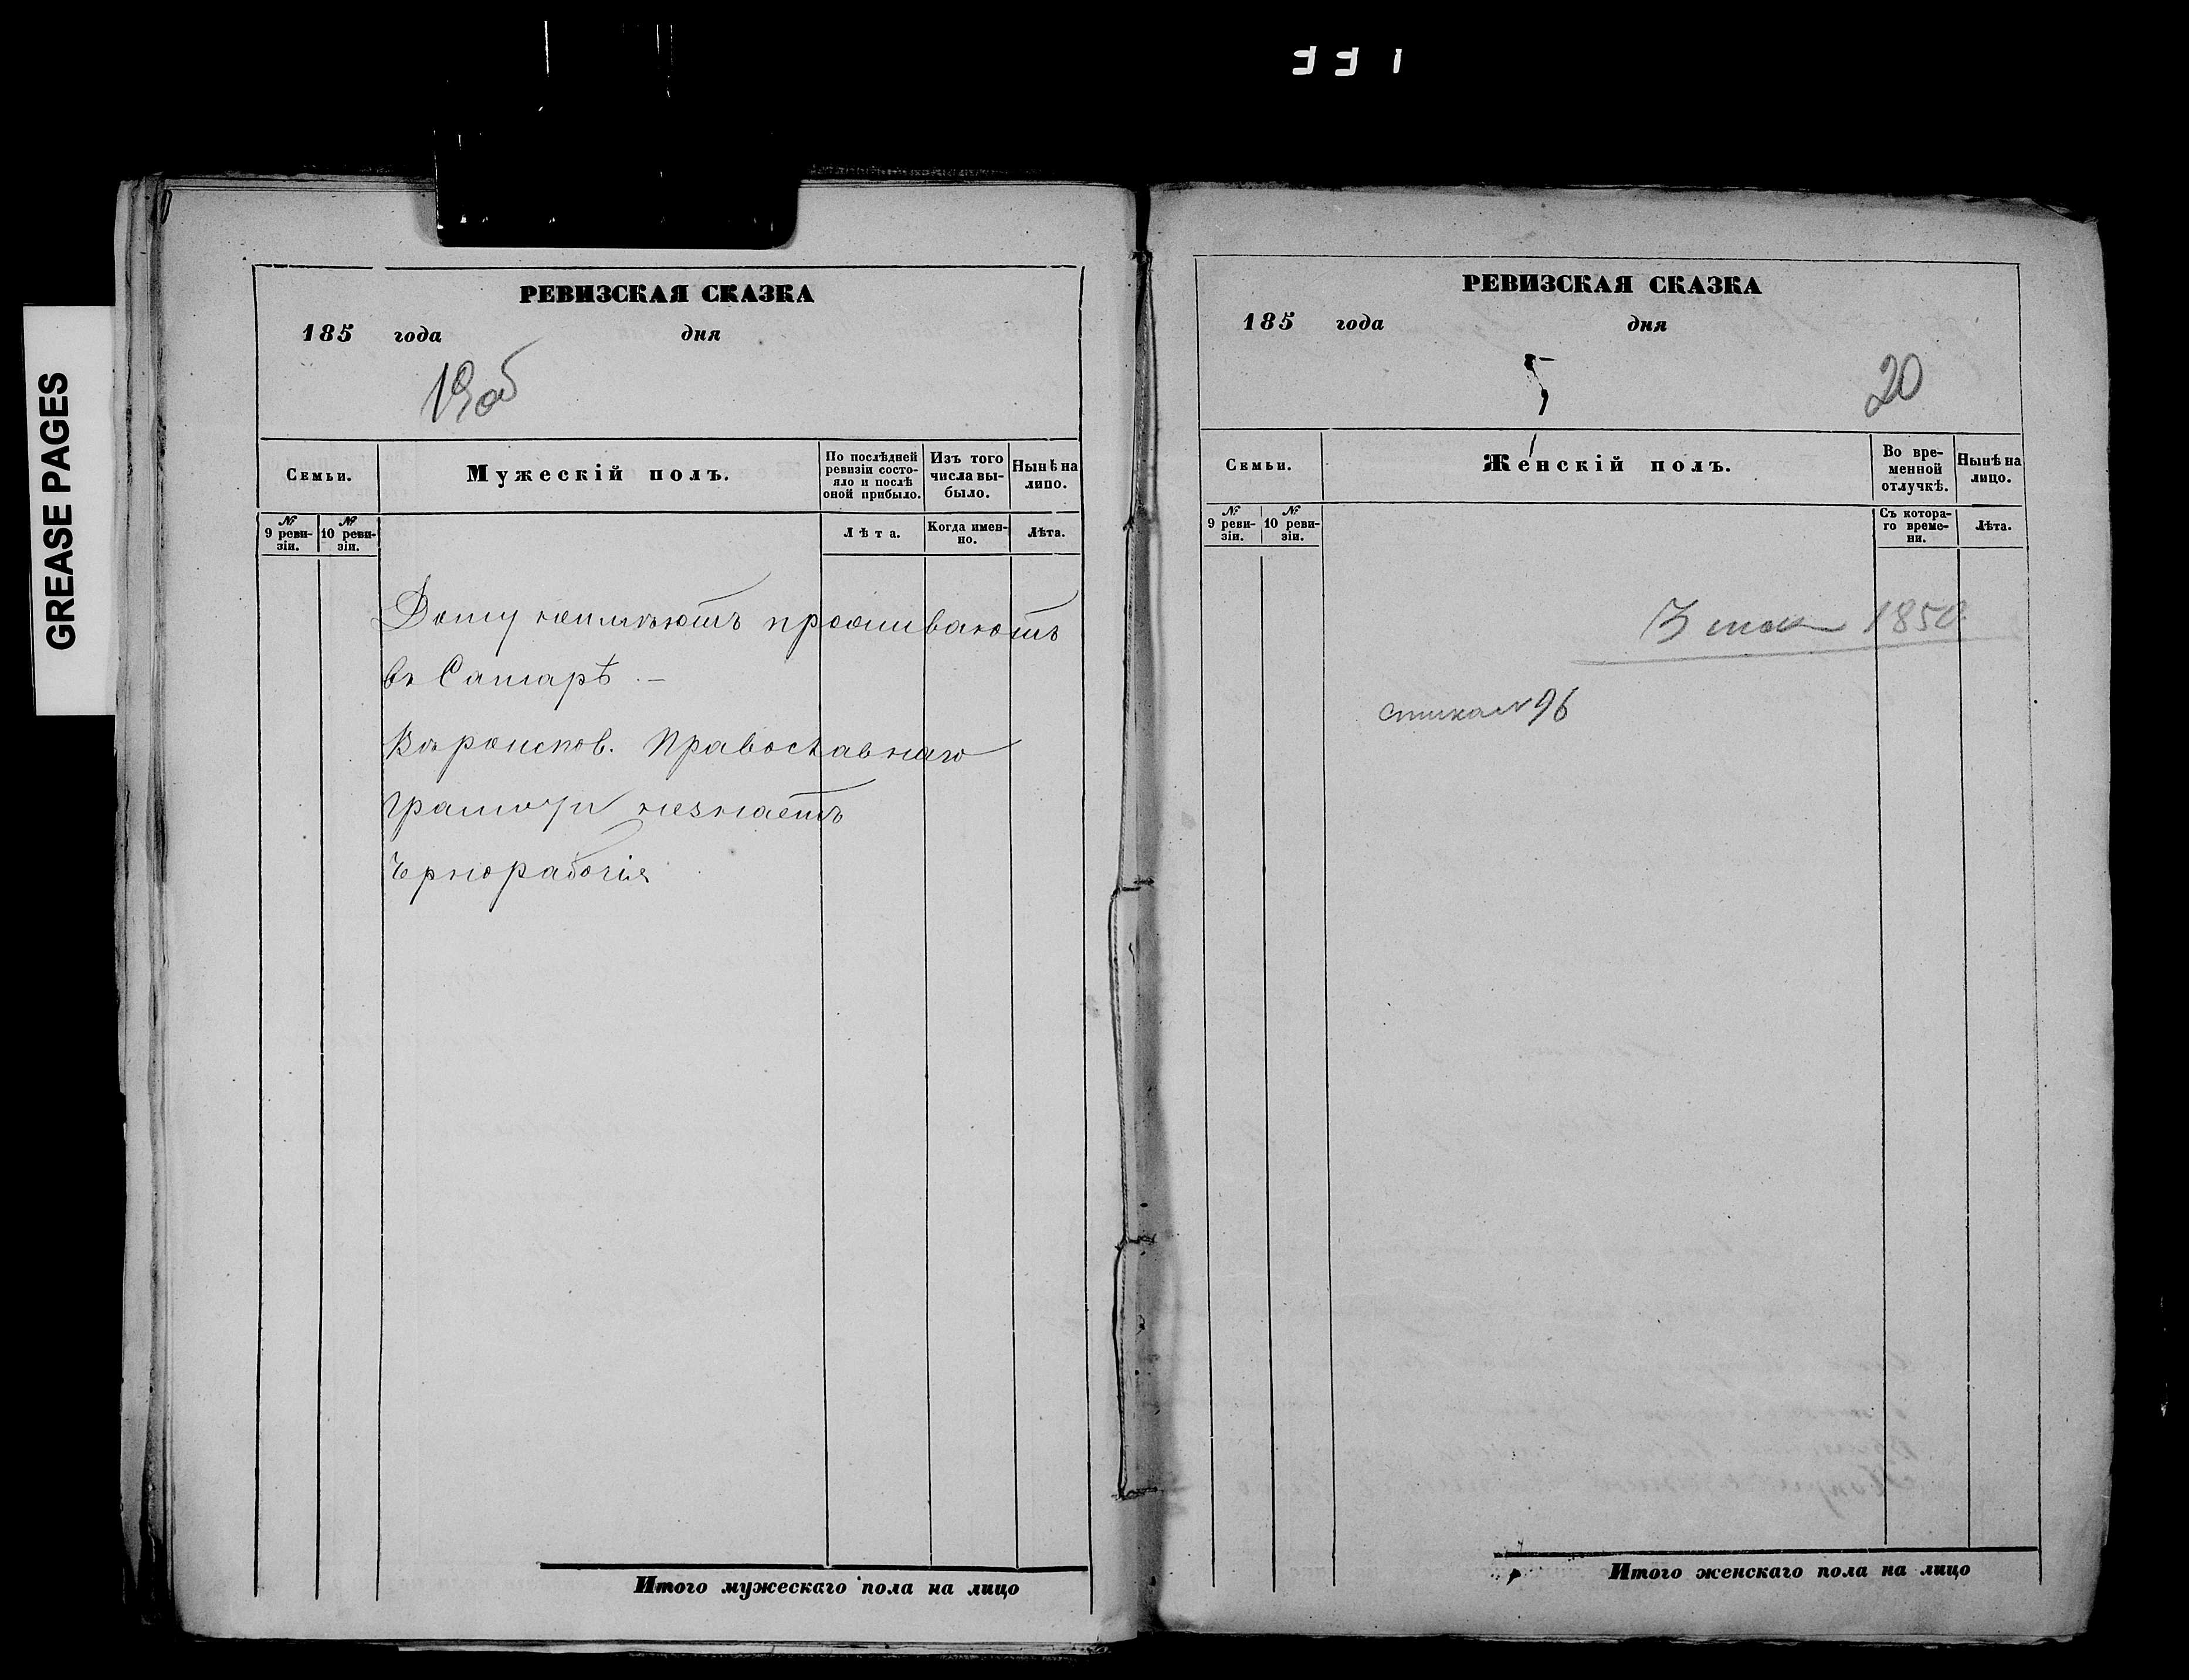 GREASE PAGES
РЕВИЗСКАЯ СКАЗКА
185 года дня
19 об
Семьи. Мужескій полъ. По послѣдней ревизіи состояло и послѣ оной прибыло. Изъ того числа выбыло. Нынѣ на лицо.
№ 9 ревизіи. № 10 ревизіи. Лѣта. Когда именно. Лѣта.
Дому неимѣютъ проживаютъ
въ Самарѣ. —
Вѣроиспов. Православнаго
Грамоты незнаетъ
Чернорабочія
Итого мужескаго пола на лицо
РЕВИЗСКАЯ СКАЗКА
185 года дня
20
Семьи. Женскій полъ. Во временной отлучкѣ. Нынѣ на лицо.
№ 9 ревизіи. № 10 ревизіи. Съ котораго времени. Лѣта.
1850
№ 96
Итого женскаго пола на лицо